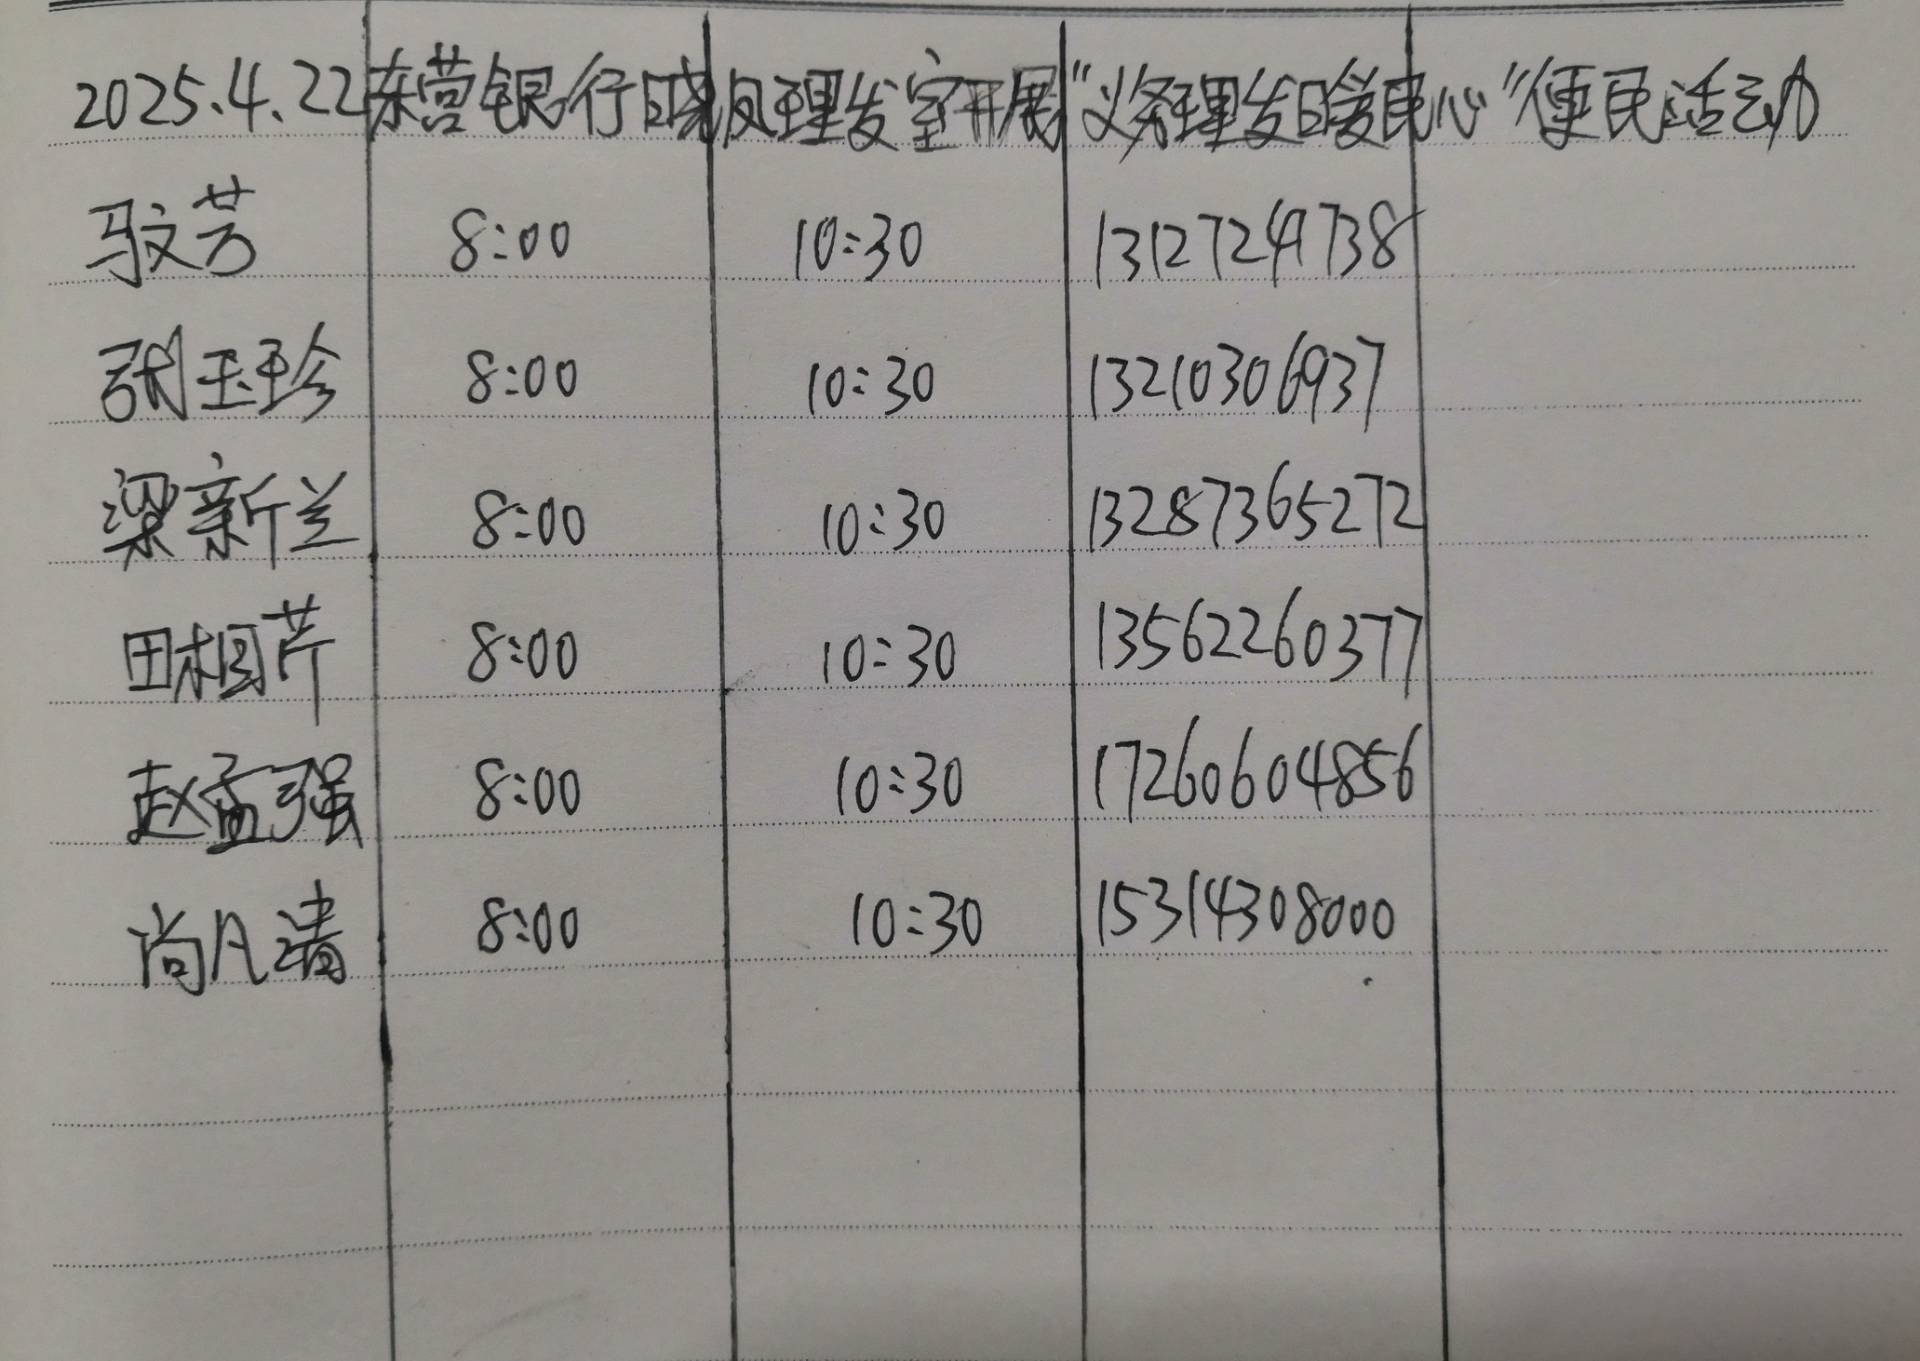 2025.4.22东营银行晓风理发室开展“义务理发暖民心”便民活动
马文芳 8:00 10:30 13127249738
张玉珍 8:00 10:30 13210306937
梁新兰 8:00 10:30 13287365272
田相芹 8:00 10:30 13562260377
赵孟强 8:00 10:30 17260604856
尚凡清 8:00 10:30 15314308000